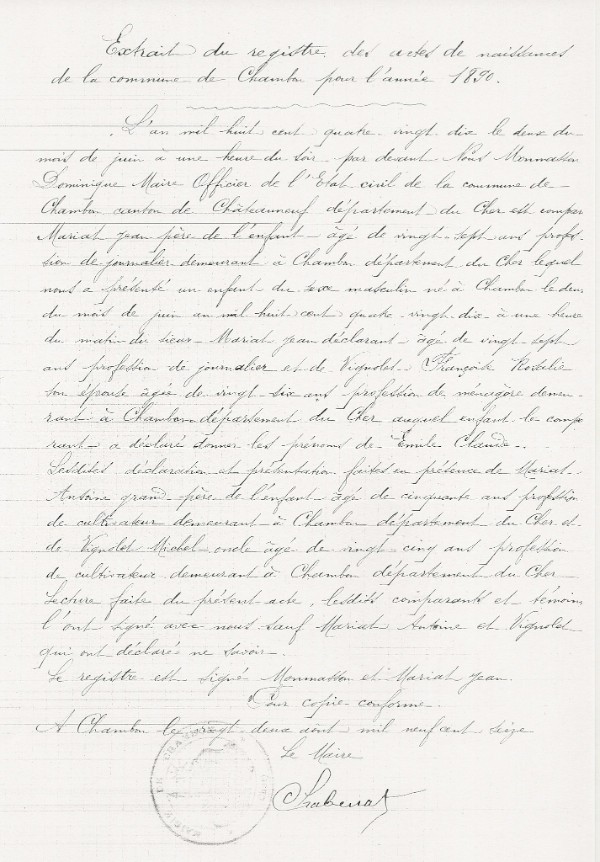 Extrait du registre des actes de naissances
de la commune de Chambon pour l'année 1890.
L'an mil huit cent quatre-vingt-dix le deux du
mois de juin à une heure du soir par devant Nous Monmasson
Dominique Maire Officier de l'Etat civil de la commune de
Chambon canton de Châteauneuf département du Cher est compar
Mariat Jean père de l'enfant âgé de vingt-sept ans profes-
sion de journalier demeurant à Chambon département du Cher lequel
nous a présenté un enfant du sexe masculin né à Chambon le deux
du mois de juin an mil huit cent quatre-vingt-dix à une heure
du matin du sieur Mariat Jean déclarant âgé de vingt-sept
ans profession de journalier et de Vignolet Françoise Rosalie
son épouse âgée de vingt-six ans profession de ménagère demeu-
rant à Chambon département du Cher auquel enfant le compa
rant a déclaré donner les prénoms de Emile Claude.
Lesdites déclaration et présentation faites en présence de Mariat
Antoine grand-père de l'enfant âgé de cinquante ans profession
de cultivateur demeurant à Chambon département du Cher et
de Vignolet Michel oncle âgé de vingt cinq ans profession
de cultivateur demeurant à Chambon département du Cher
Lecture faite du présent acte, lesdits comparants et témoins
l'ont signé avec nous sauf Mariat Antoine et Vignolet
qui ont déclaré ne savoir.
Le registre est signé Monmasson et Mariat Jean.
Pour copie conforme.
A Chambon le vingt-deux août mil neuf cent seize
Le Maire